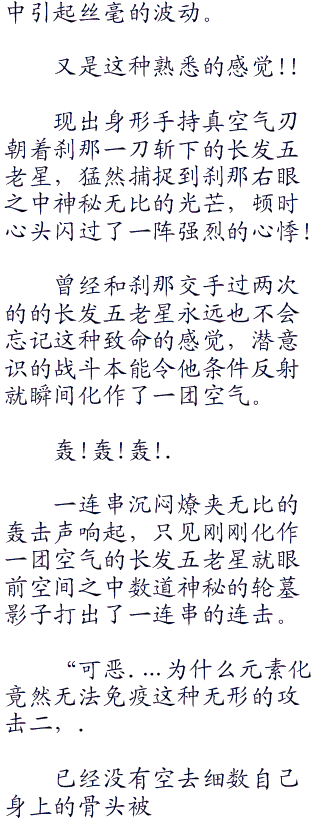 中引起丝毫的波动。
又是这种熟悉的感觉!!
现出身形手持真空气刃
朝着刹那一刀斩下的长发五
老星，猛然捕捉到刹那右眼
之中神秘无比的光芒，顿时
心头闪过了一阵强烈的心悸!
曾经和刹那交手过两次
的的长发五老星永远也不会
忘记这种致命的感觉，潜意
识的战斗本能令他条件反射
就瞬间化作了一团空气。
轰!轰!轰!.
一连串沉闷燎夹无比的
轰击声响起，只见刚刚化作
一团空气的长发五老星就眼
前空间之中数道神秘的轮墓
影子打出了一连串的连击。
“可恶....为什么元素化
竟然无法免疫这种无形的攻
击二，.
已经没有空去细数自己
身上的骨头被